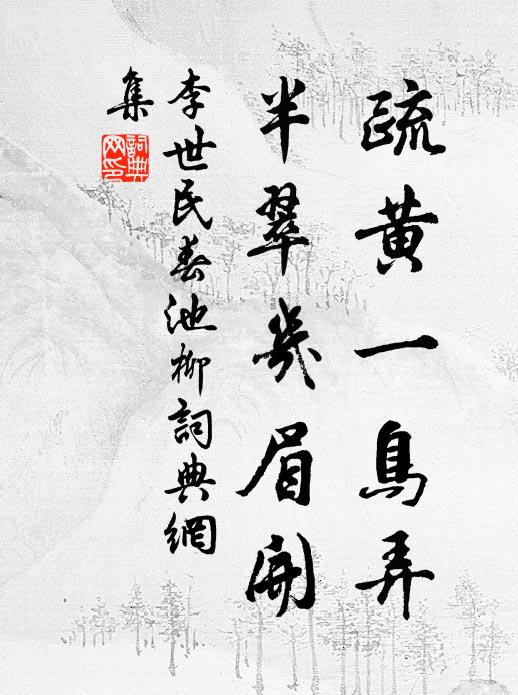 疏黄一鳥弄
半翠幾眉開
李世民春池柳詞典網
集
詞典
网印